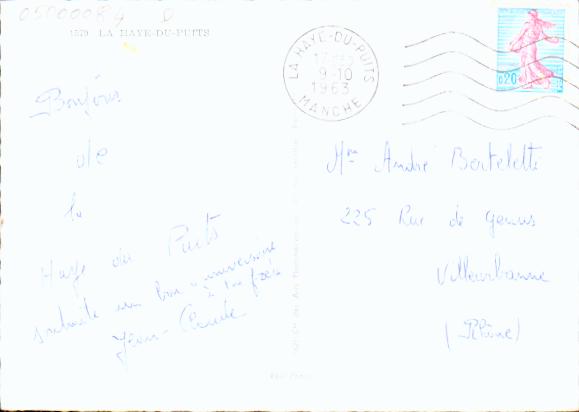 05000084 D
1579 LA HAYE-DU-PUITS
LA HAYE-DU-PUITS
9-10
1963
MANCHE
0,20
Bonjour
de
la
Haye du Puits
souhaite un bon anniversaire
à ton frère
Jean-Claude
Mr André Bertoletti
225 Rue de Genas
Villeurbanne
(Rhône)